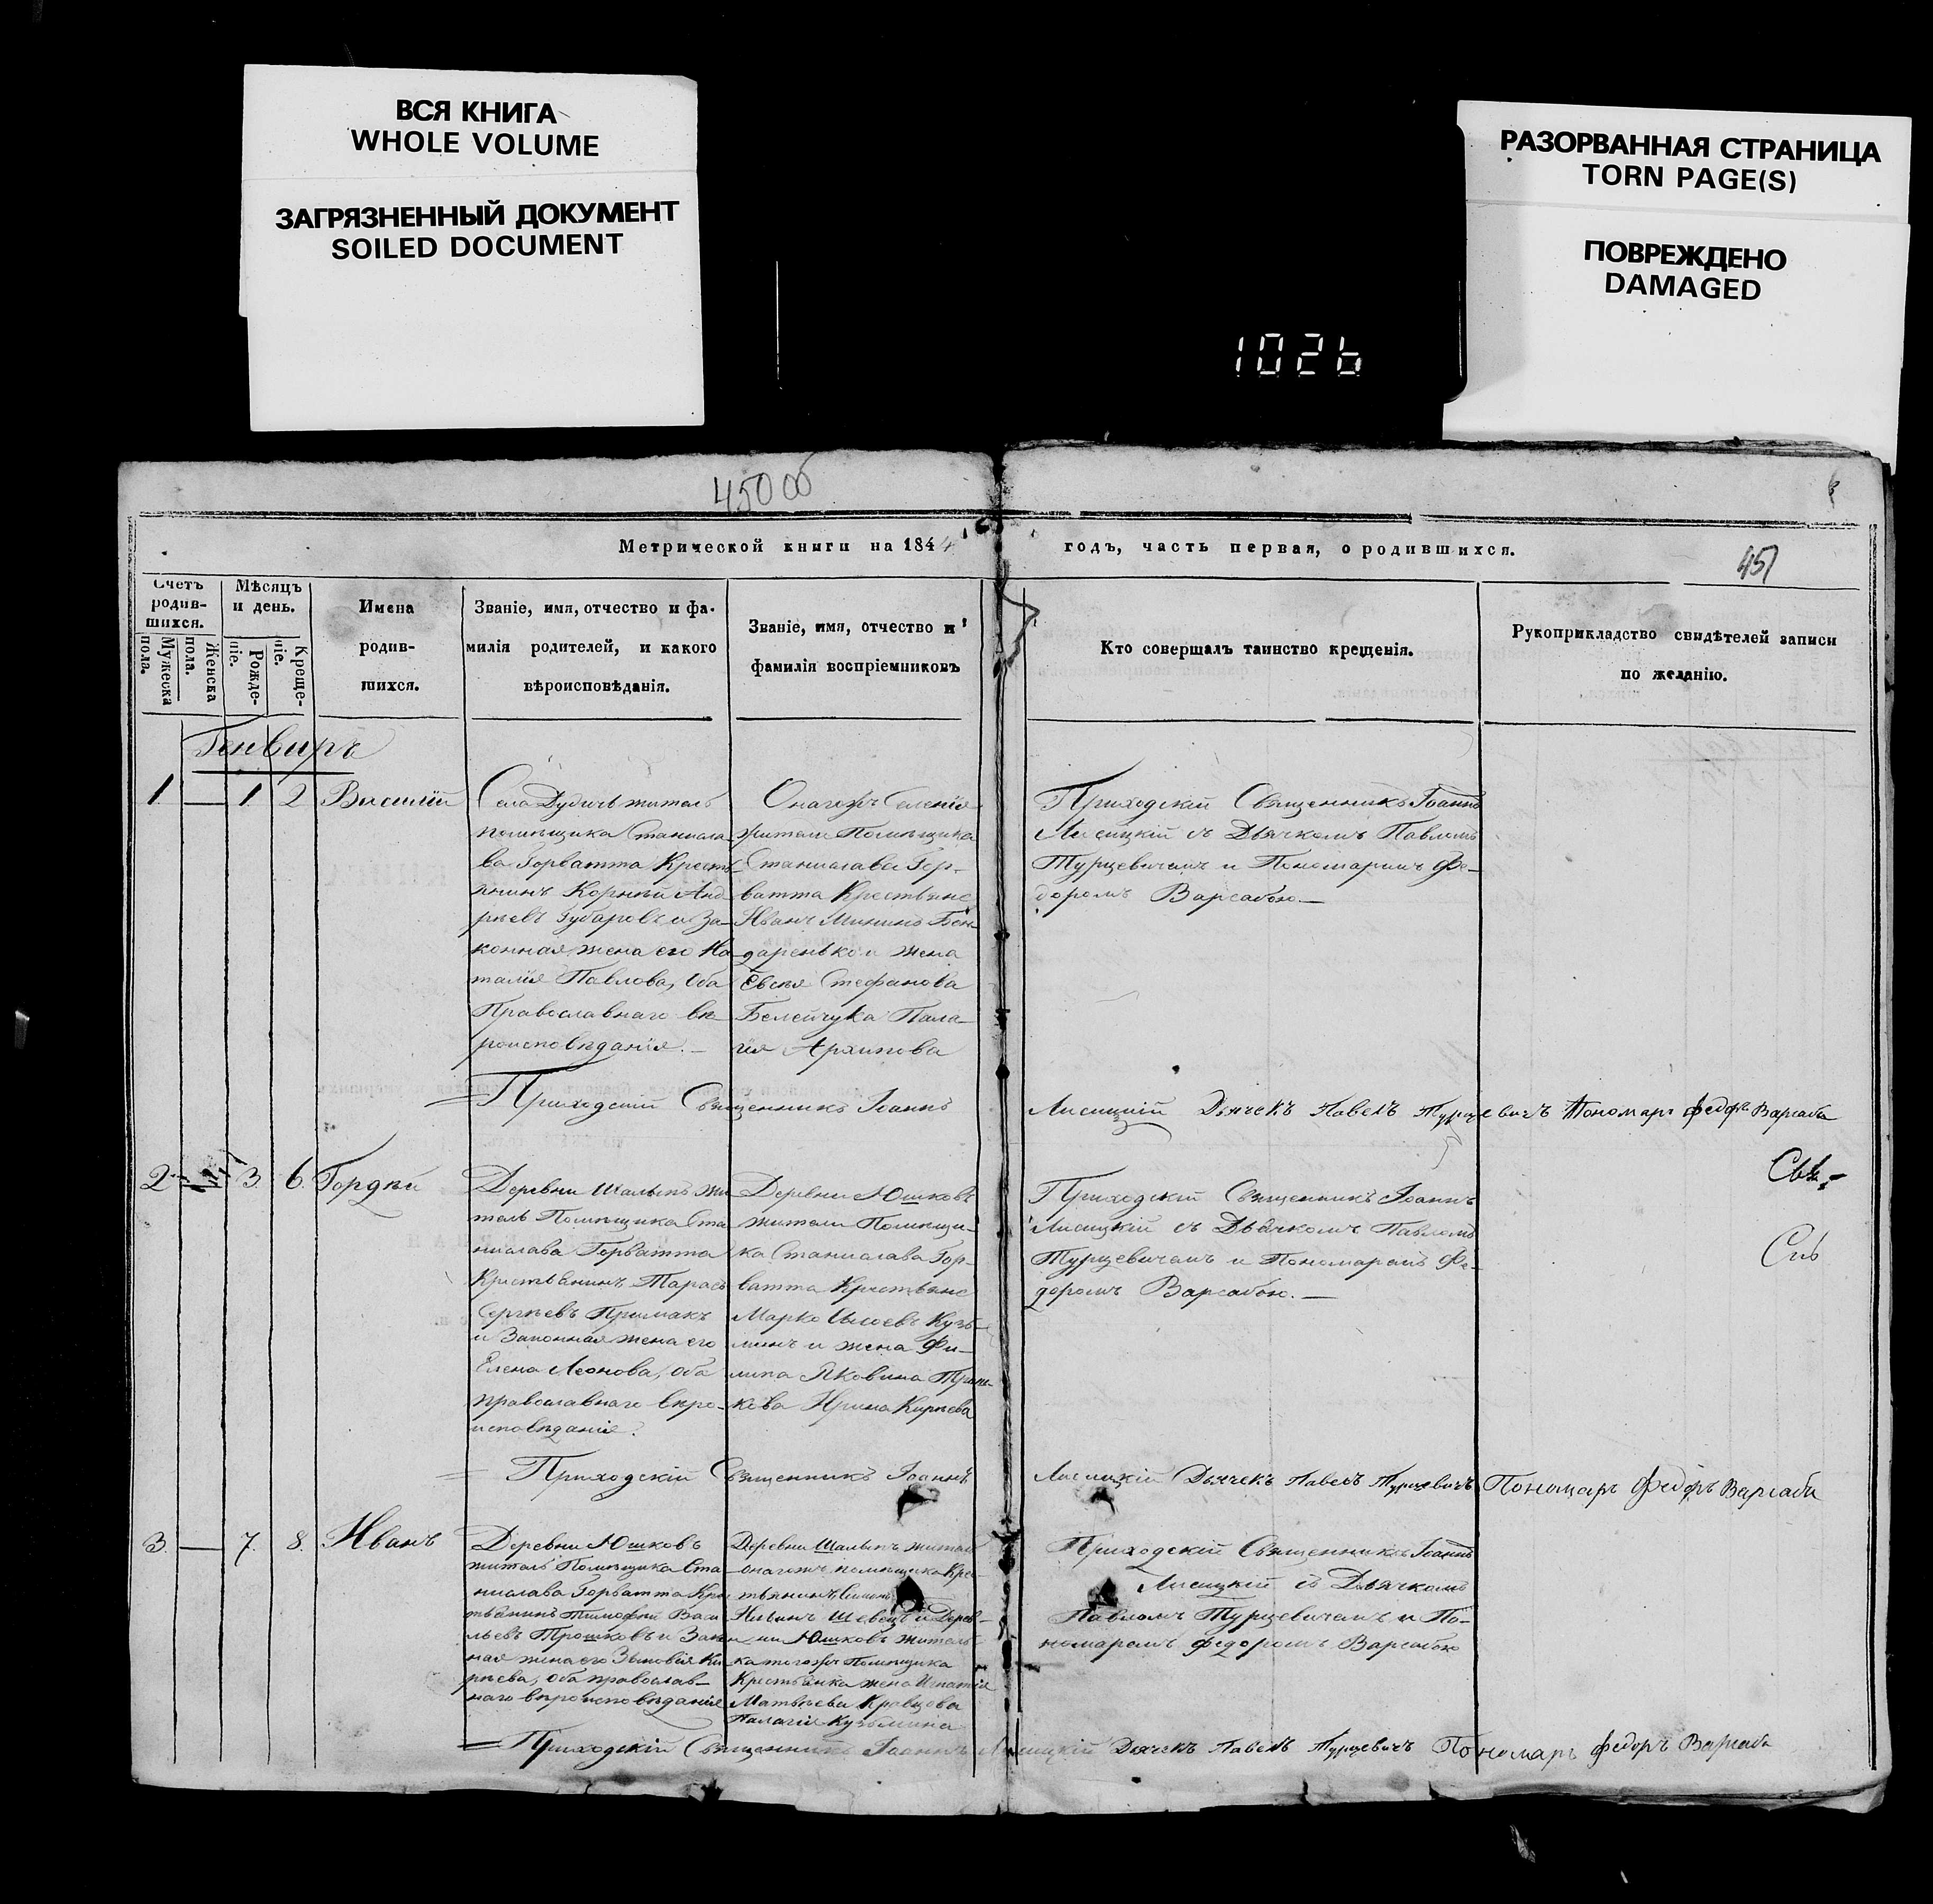 ВСЯ КНИГА
WHOLE VOLUME
ЗАГРЯЗНЕННЫЙ ДОКУМЕНТ
SOILED DOCUMENT
РАЗОРВАННАЯ СТРАНИЦА
TORN PAGE(S)
ПОВРЕЖДЕНО
DAMAGED
1026
450 об
Метрической книги на 1844
годъ, часть первая, о родившихся.
451
Счетъ родив-шихся.
Мужеска пола.
Женска пола.
Мѣсяцъ и день.
Рожде-ніе.
Креще-ніе.
Имена
родив-
шихся.
Званіе, имя, отчество и фа-
милія родителей, и какого
вѣроисповѣданія.
Званіе, имя, отчество и
фамилія воспріемниковъ
Кто совершалъ таинство крещенія.
Рукоприкладство свидѣтелей записи
по желанію.
Генваръ
1. — 1 2 Василій
Села Дудичъ житель
помѣщика Станисла
ва Горватта Кресть
янинъ Корнѣй Анд
рѣевъ Губаровъ и За-
конная жена его На
талія Павлова, оба
Православнаго вѣ
роисповѣданія. —
Онагожъ Селенія
жители Помѣщика
Станислава Гор-
ватта Крестьяне
Иванъ Мининъ Бон
даренько и жена
Евсея Стефанова
Белейчука Пала-
гія Архипова
Приходскій Священникъ Іоаннъ
Лисицкій съ Дьячкомъ Павломъ
Турцевичемъ и Пономаремъ Фе-
доромъ Варсабою. —
Приходскій Священникъ Іоаннъ Лисицкій Дьячекъ Павелъ Турцевичъ Пономаръ Федоръ Варсаба
2 3 6 Гордѣй
Деревни Шалыпъ жи
тель Помѣщика Ста
нислава Горватта
Крестьянинъ Тарасъ
Сергѣевъ Примакъ
и Законная жена его
Елена Леонова, оба
православнаго вѣро-
исповѣданія.
Деревни Юшковъ
жители Помѣщи-
ка Станислава Гор-
ватта Крестьяне
Марко Кузь-
минъ и жена Фи-
липа Яковина
Ирина Кирѣева
Приходскій Священникъ Іоаннъ
Лисицкій съ Дьячкомъ Павломъ
Турцевичемъ и Пономаремъ Фе-
доромъ Варсабою. —
Приходскій Священникъ Іоаннъ Лисицкій Дьячекъ Павелъ Турцевичъ Пономаръ Федоръ Варсаба
3. — 7. 8. Иванъ
Деревни Юшковъ
житель Помѣщика Ста
нислава Горватта Кре
тьянинъ Тимофѣй Васи
льевъ Трошковъ и Закон
ная жена его Зѣновія Ки
рѣева, оба православ-
наго вѣроисповѣданія
Деревни Шалыпъ житель
онагожъ помѣщика Кре-
тьянинъ
Шевецъ и Дерев-
ни Юшковъ житель
ка тогожъ Помѣщика
Крестьянка жена Игнатія
Матвѣева Кравцова
Палагія Кузьмина
Приходскій Священникъ Іоаннъ
Лисицкій съ Дьячкомъ
Павломъ Турцевичемъ и По-
номаремъ Федоромъ Варсабою
Приходскій Священникъ Іоаннъ Лисицкій Дьячекъ Павелъ Турцевичъ Пономаръ Федоръ Варсаба